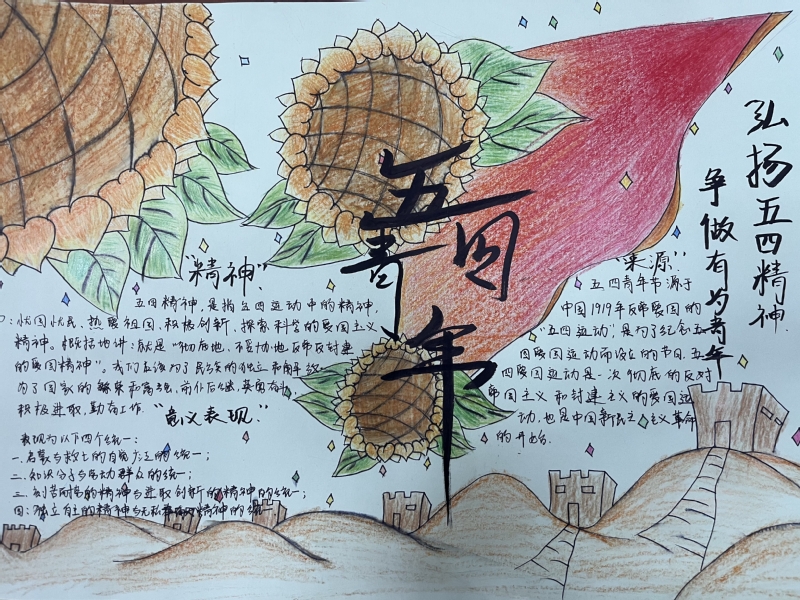 弘扬五四精神
争做有为青年
五四
青年
"精神"
五四精神,是指五四运动中的精神,
忧国忧民、热爱祖国、积极创新、探索科学的爱国主义
精神。概括地讲:就是"彻底地、不妥协地反帝反封建
的爱国精神"。我们应该为了民族的独立和解放
为了国家的繁荣和富强,前仆后继,英勇奋斗,
积极进取,勤奋工作.
"意义表现"
表现为以下四个统一:
的统一;
二.知识分子与劳动群众的统一;
三.的精神与进取创新的精神的统一;
四:独立自主的精神与精神的统一
"来源"
五四青年节源于
中国1919年反帝爱国的
"五四运动",是为了纪念五
四爱国运动而设立的节日.五
四爱国运动是一次彻底的反对
帝国主义和封建主义的爱国运
动,也是中国新民主主义革命
的开始。